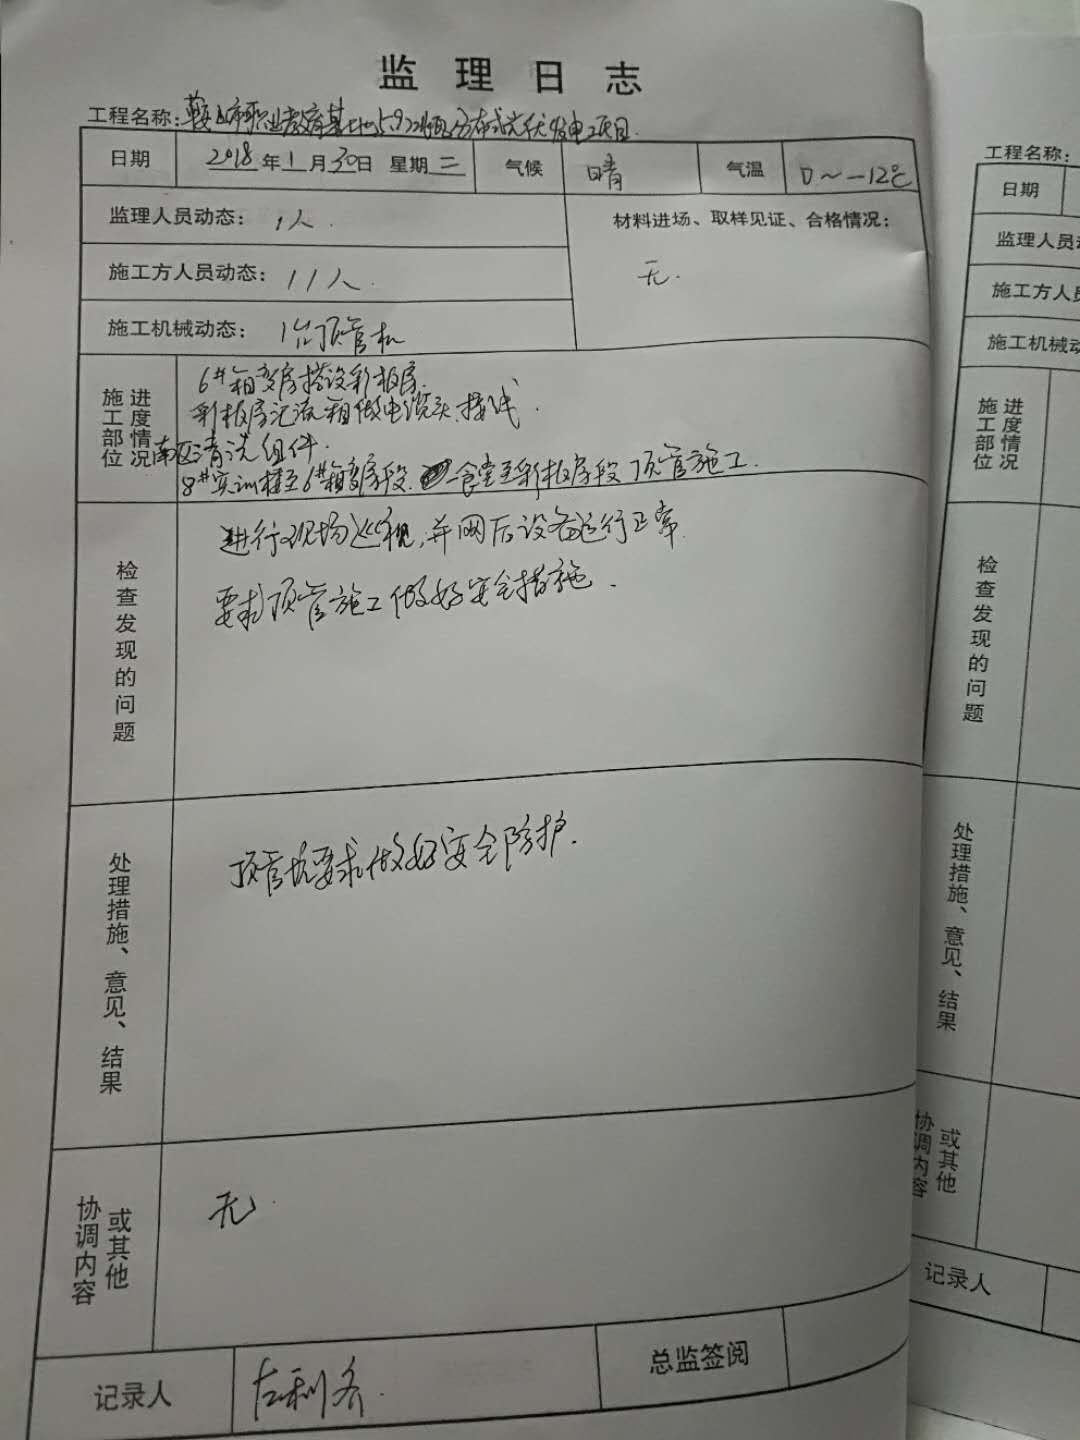 监理日志
工程名称：鞍山市职业教育基地5.92MW分布式光伏发电项目
日期 2018年1月30日 星期二 气候 晴 气温 0～-12℃
监理人员动态： 1人. 材料进场、取样见证、合格情况：
无.
施工方人员动态： 11人.
施工机械动态： 1台顶管机
施工部位 进度情况
6#箱变房搭设彩板房.
彩板房汇流箱做电缆头.接线.
南区清洗组件.
8#实训楼至6#箱变房段. 食堂至彩板房段顶管施工.
检查发现的问题
进行现场巡视,并网后设备运行正常.
要求顶管施工做好安全措施.
处理措施、意见、结果
顶管坑要求做好安全防护.
协调内容 或其他
无.
记录人 总监签阅
工程名称：
日期
监理人员
施工方人员
施工机械动
施工部位 进度情况
检查发现的问题
处理措施、意见、结果
协调内容 或其他
记录人